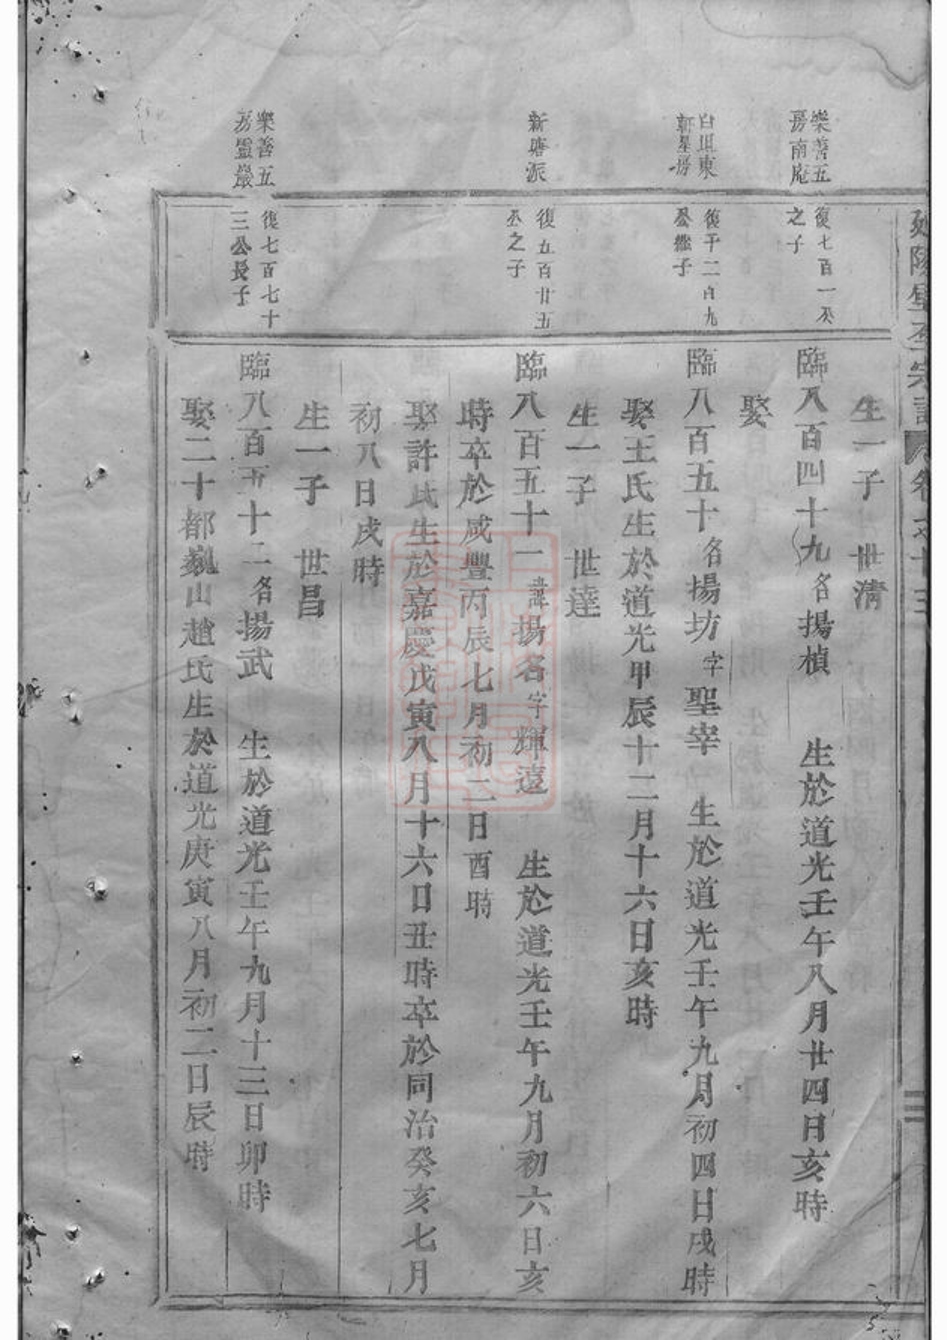 生一子　世清
樂善五
房南庵
復七百一公
之子
臨八百四十九名揚楨　生於道光壬午八月廿四日亥時
娶
白坦東
軒星房
公繼子
臨八百五十名揚坊字聖宰　生於道光壬午九月初四日戌時
娶王氏生於道光甲辰十二月十六日亥時
生一子　世達
新塘派
復五百廿五
公之子
臨八百五十一諱揚名字輝遠　生於道光壬午九月初六日亥
時卒於咸豐丙辰七月初二日酉時
娶許氏生於嘉慶戊寅八月十六日丑時卒於同治癸亥七月
初八日戌時
生一子　世昌
樂善五
房靈巖
復七百七十
三公長子
臨八百五十二名揚武　生於道光壬午九月十三日卯時
娶二十都巍山趙氏生於道光庚寅八月初二日辰時